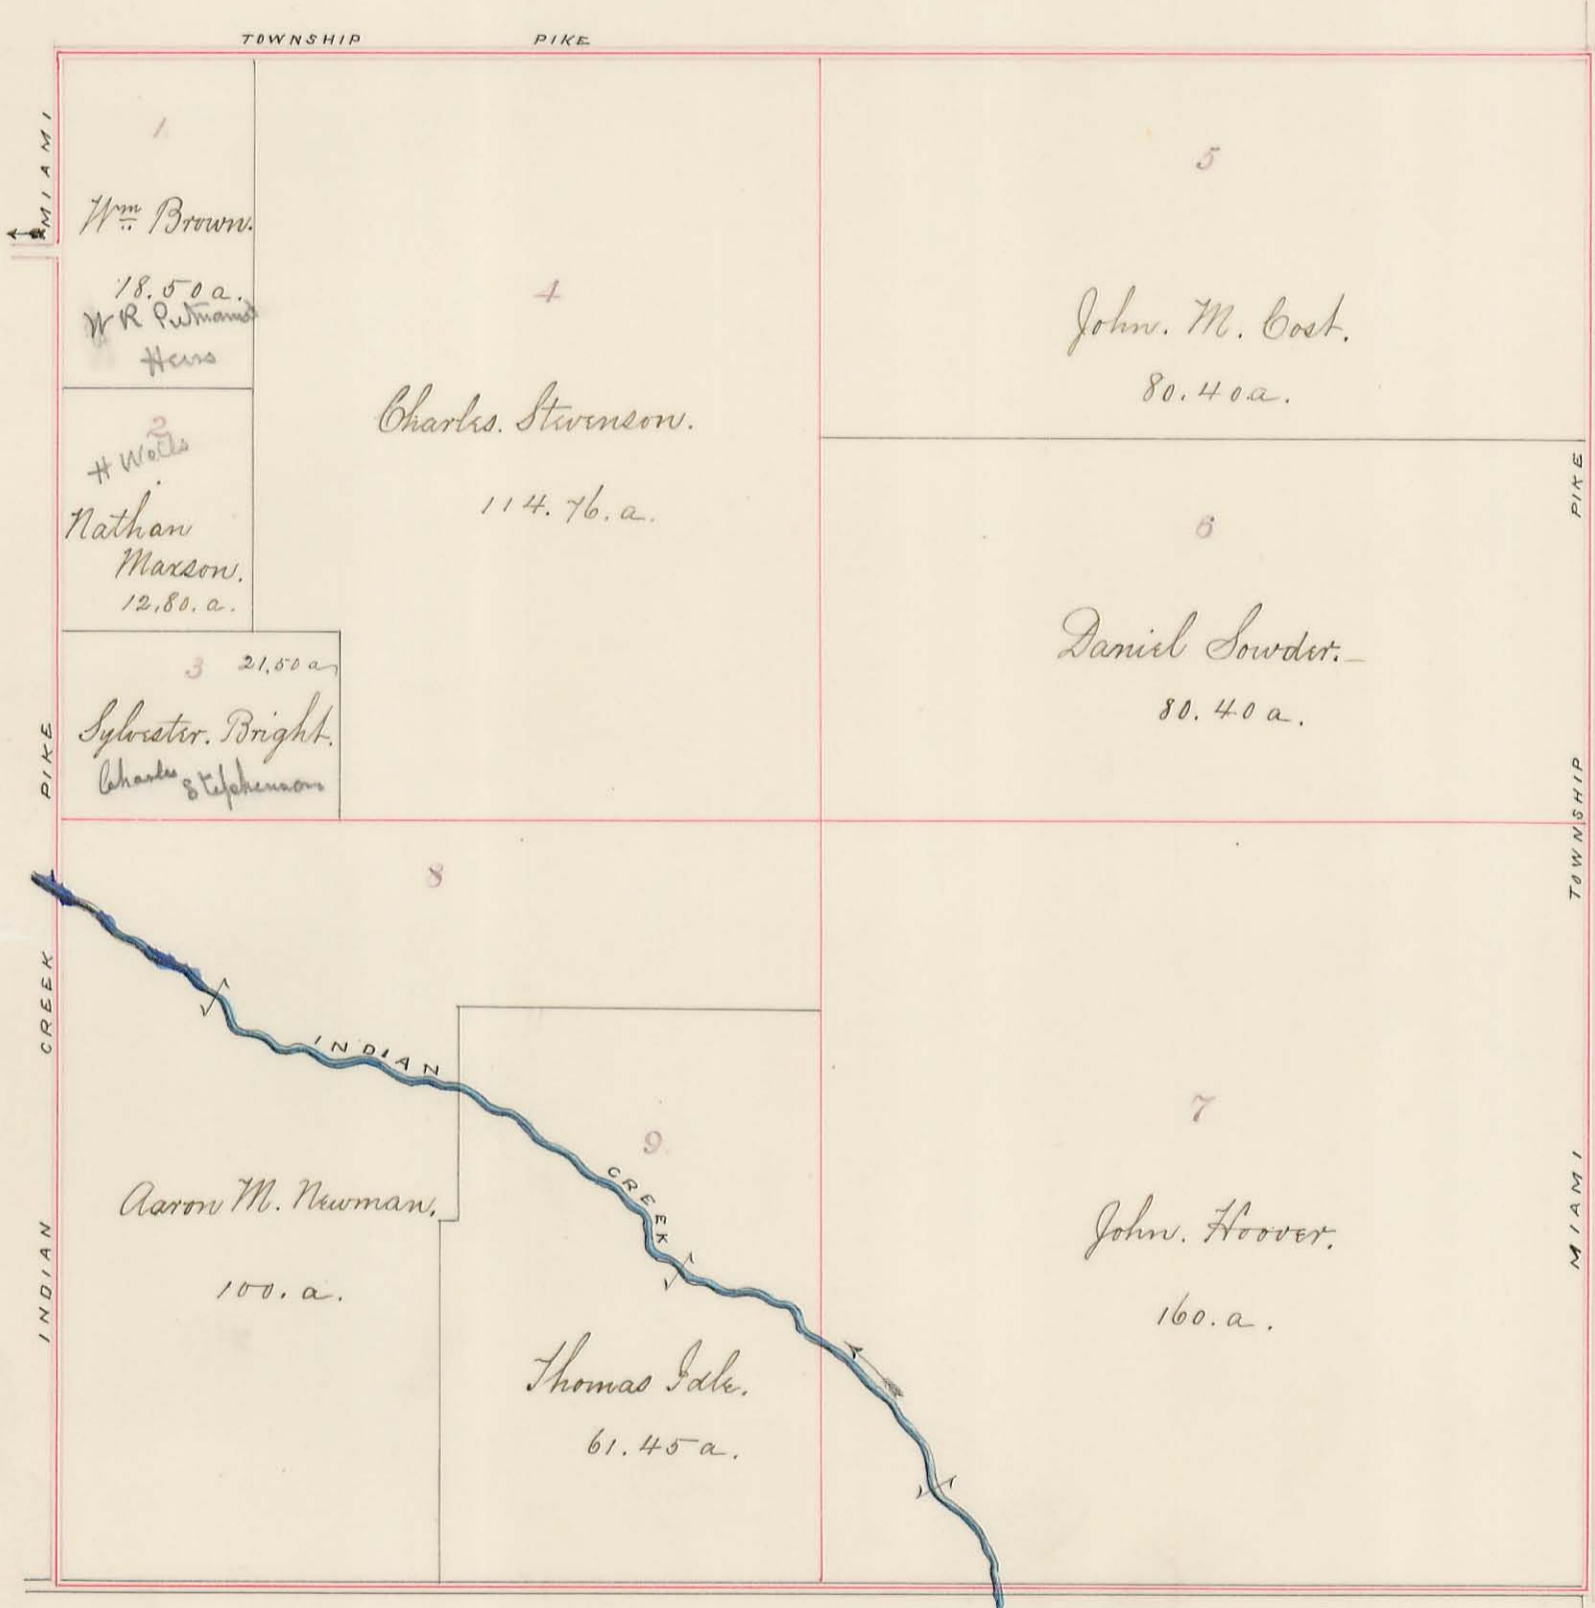 TOWNSHIP PIKE
MIAMI
1
Wm Brown.
18.50 a.
W R Putnams
Heirs
2
H Wells
Nathan
Maxson.
12,80. a.
3 21,50 a
Sylvester. Bright.
Charles Stephenson
4
Charles. Stevenson.
114.76. a.
5
John. M. Cost.
80.40 a.
6
Daniel Sowder.
80.40 a.
PIKE
TOWNSHIP
MIAMI
PIKE
CREEK
INDIAN
8
INDIAN
CREEK
Aaron M. Newman.
100. a.
9
Thomas Idle.
61.45 a.
7
John. Hoover.
160. a.